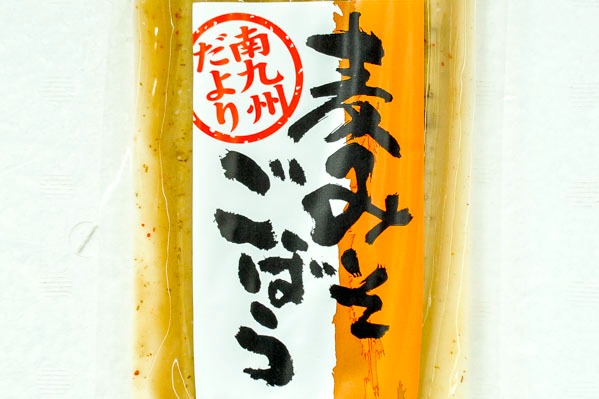 南九州
だより
麦みそ
ごぼう